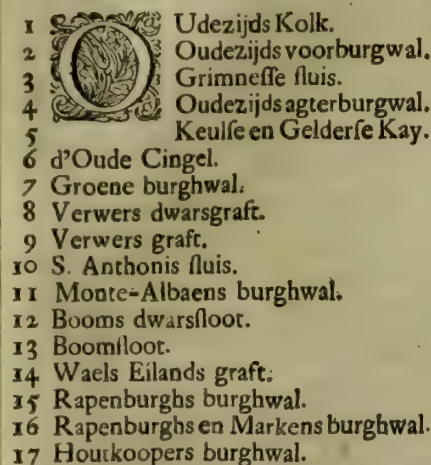 1 OUdezijds Kolk.
2 Oudezijds voorburgwal.
3 Grimneſſe ſluis.
4 Oudezijds agterburgwal.
5 Keulſe en Gelderſe Kay.
6 d'Oude Cingel.
7 Groene burghwal.
8 Verwers dwarsgraft.
9 Verwers graft.
10 S. Anthonis ſluis.
11 Monte-Albaens burghwal.
12 Booms dwarsſloot.
13 Boomſloot.
14 Waels Eilands graft.
15 Rapenburghs burghwal.
16 Rapenburghs en Markens burghwal.
17 Houtkoopers burghwal.